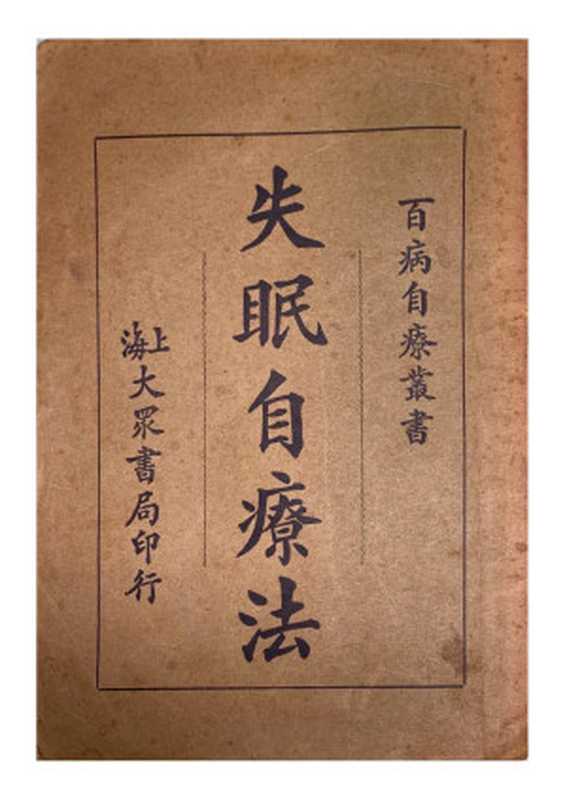 百病自療叢書
失眠自療法
上海大眾書局印行